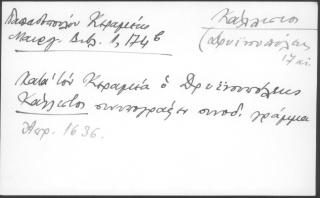 Παπαδοπούλου Κεραμέως
Μαυρ. Βιβ. 1, 174β
Κάλλιστος
Δρυϊνουπόλεως
17 αι.
Κατά τόν Κεραμέα ὁ Δρυϊνουπόλεως
Κάλλιστος συνυπογράφει συνοδ. γράμμα
Ἀπρ. 1636.